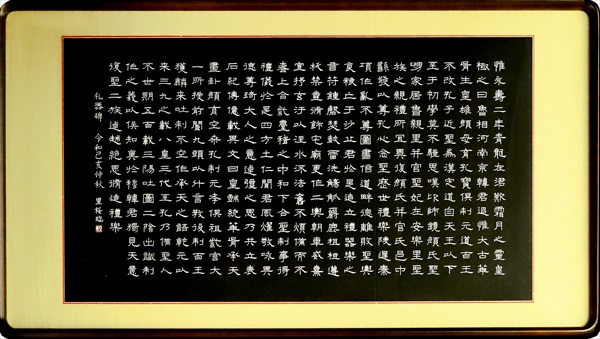 惟永壽二年青龍在涒歎霜月之靈皇
極之日魯相河南京韓君追惟大古華
胥生皇雄顏母育孔寶俱制元道百王
不改孔子近聖為漢定道自天王以下
至于初學莫不驥思嘆卬師鏡顏氏聖
舅家居魯親里并官聖妃在安樂里聖
族之親禮所宜異復顏氏并官氏邑中
繇發以尊孔心念聖歷世禮樂陵遲秦
項作亂不尊圖書倍道畔德離敗聖輿
食糧亡于沙丘君於是造立禮器樂之
音苻鍾磬瑟鼓雷洗觴觚爵鹿柤梪籩
柉禁壺脩飾宅廟更作二輿朝車威熹
宣抒玄汙以注水流法舊不煩備而不
奢上合紫臺稽之中和下合聖制事得
禮儀於是四方士仁聞君風燿敬咏其
德尊琦大人之意逴彌之思乃共立表
石紀傳億載其文曰皇戲統華胥承天
畫卦顏育空桑孔制元孝俱祖紫宮大
一所授前闓九頭以什言教後制百王
獲麟來吐制不空作承天之語乾元以
來三九之載八皇三代至孔乃備聖人
不世期五百載三陽吐圖二陰出讖制
作之義以俟知奧於穆韓君獨見天意
復聖二族逴越絕思脩造禮樂
礼器碑 令和己亥仲秋 里桜臨